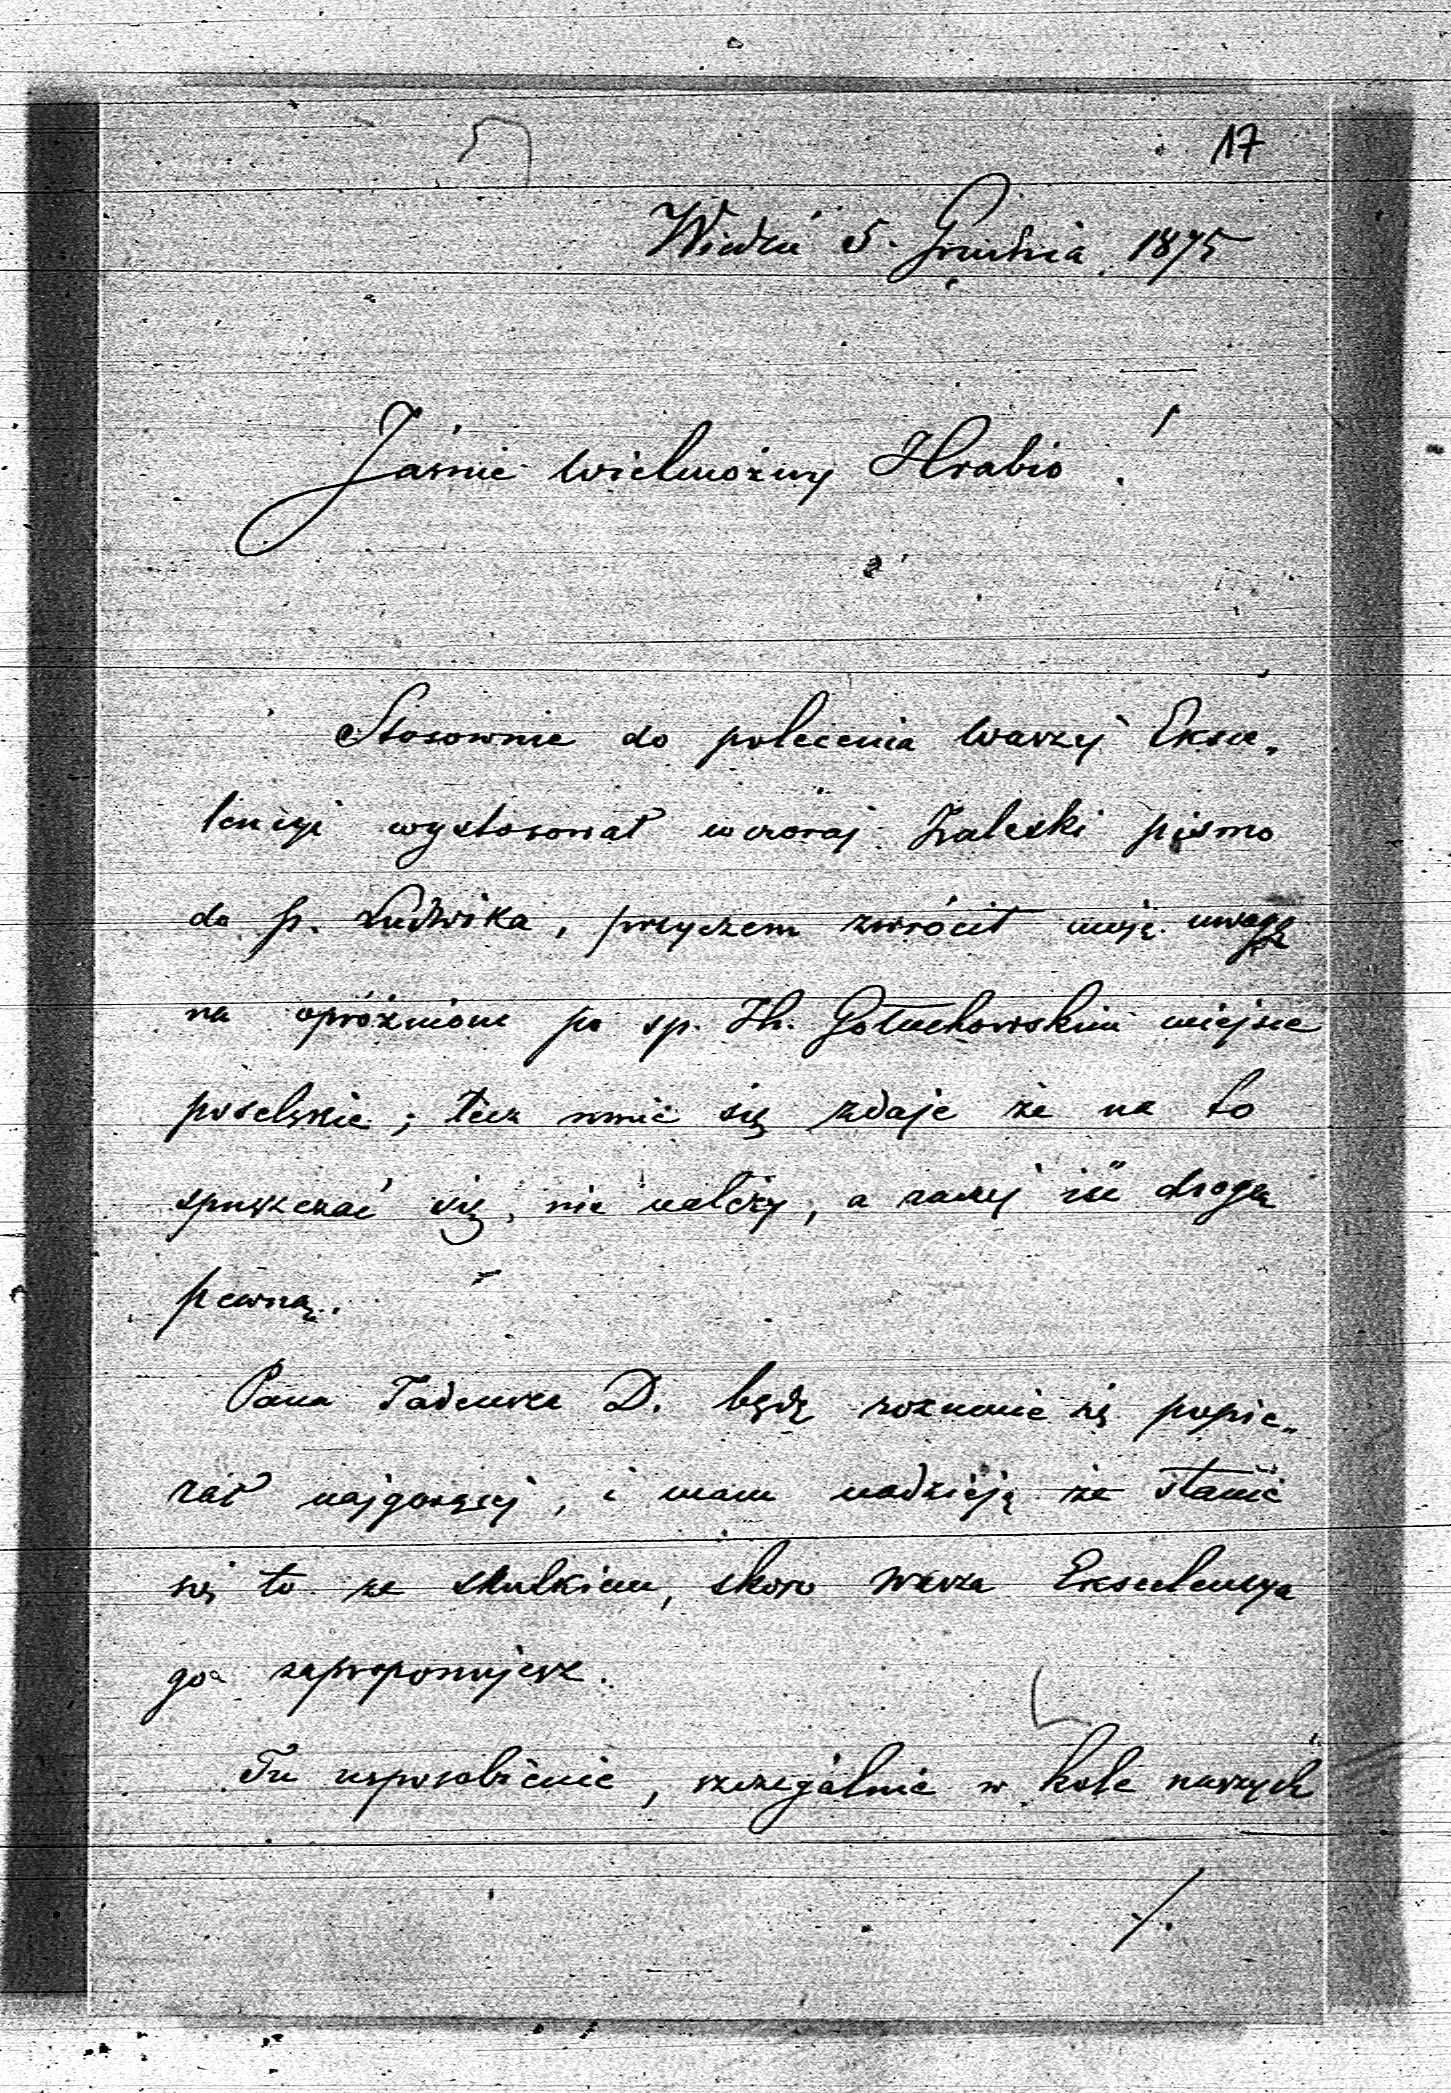 17
Wiedeń 5. Grudnia 1875
Jaśnie Wielmożny Hrabio!
Stosownie do polecenia Waszej Eksce„
lencyi wystosował wczoraj Zaleski pismo
do p. Ludwika, przyczem zwrócił moją uwagę
na opróżnione po sp. Hr. Gołuchowskim miejsce
poselskie; lecz mnie się zdaje że na to
spuszczać się nie należy, a raczej iść drogą
pewną.
Pana Tadeusza D. będę rozumie się popie„
rał najgoręcej, i mam nadzieję że stanie
się to ze skutkiem, skoro Wasza Ekscelencya
go zaproponujesz.
Tu usposobienie, szczególnie w kole naszych
./.